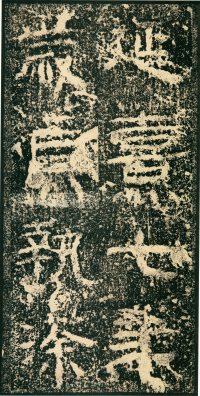 延熹七年
歲貞執涂